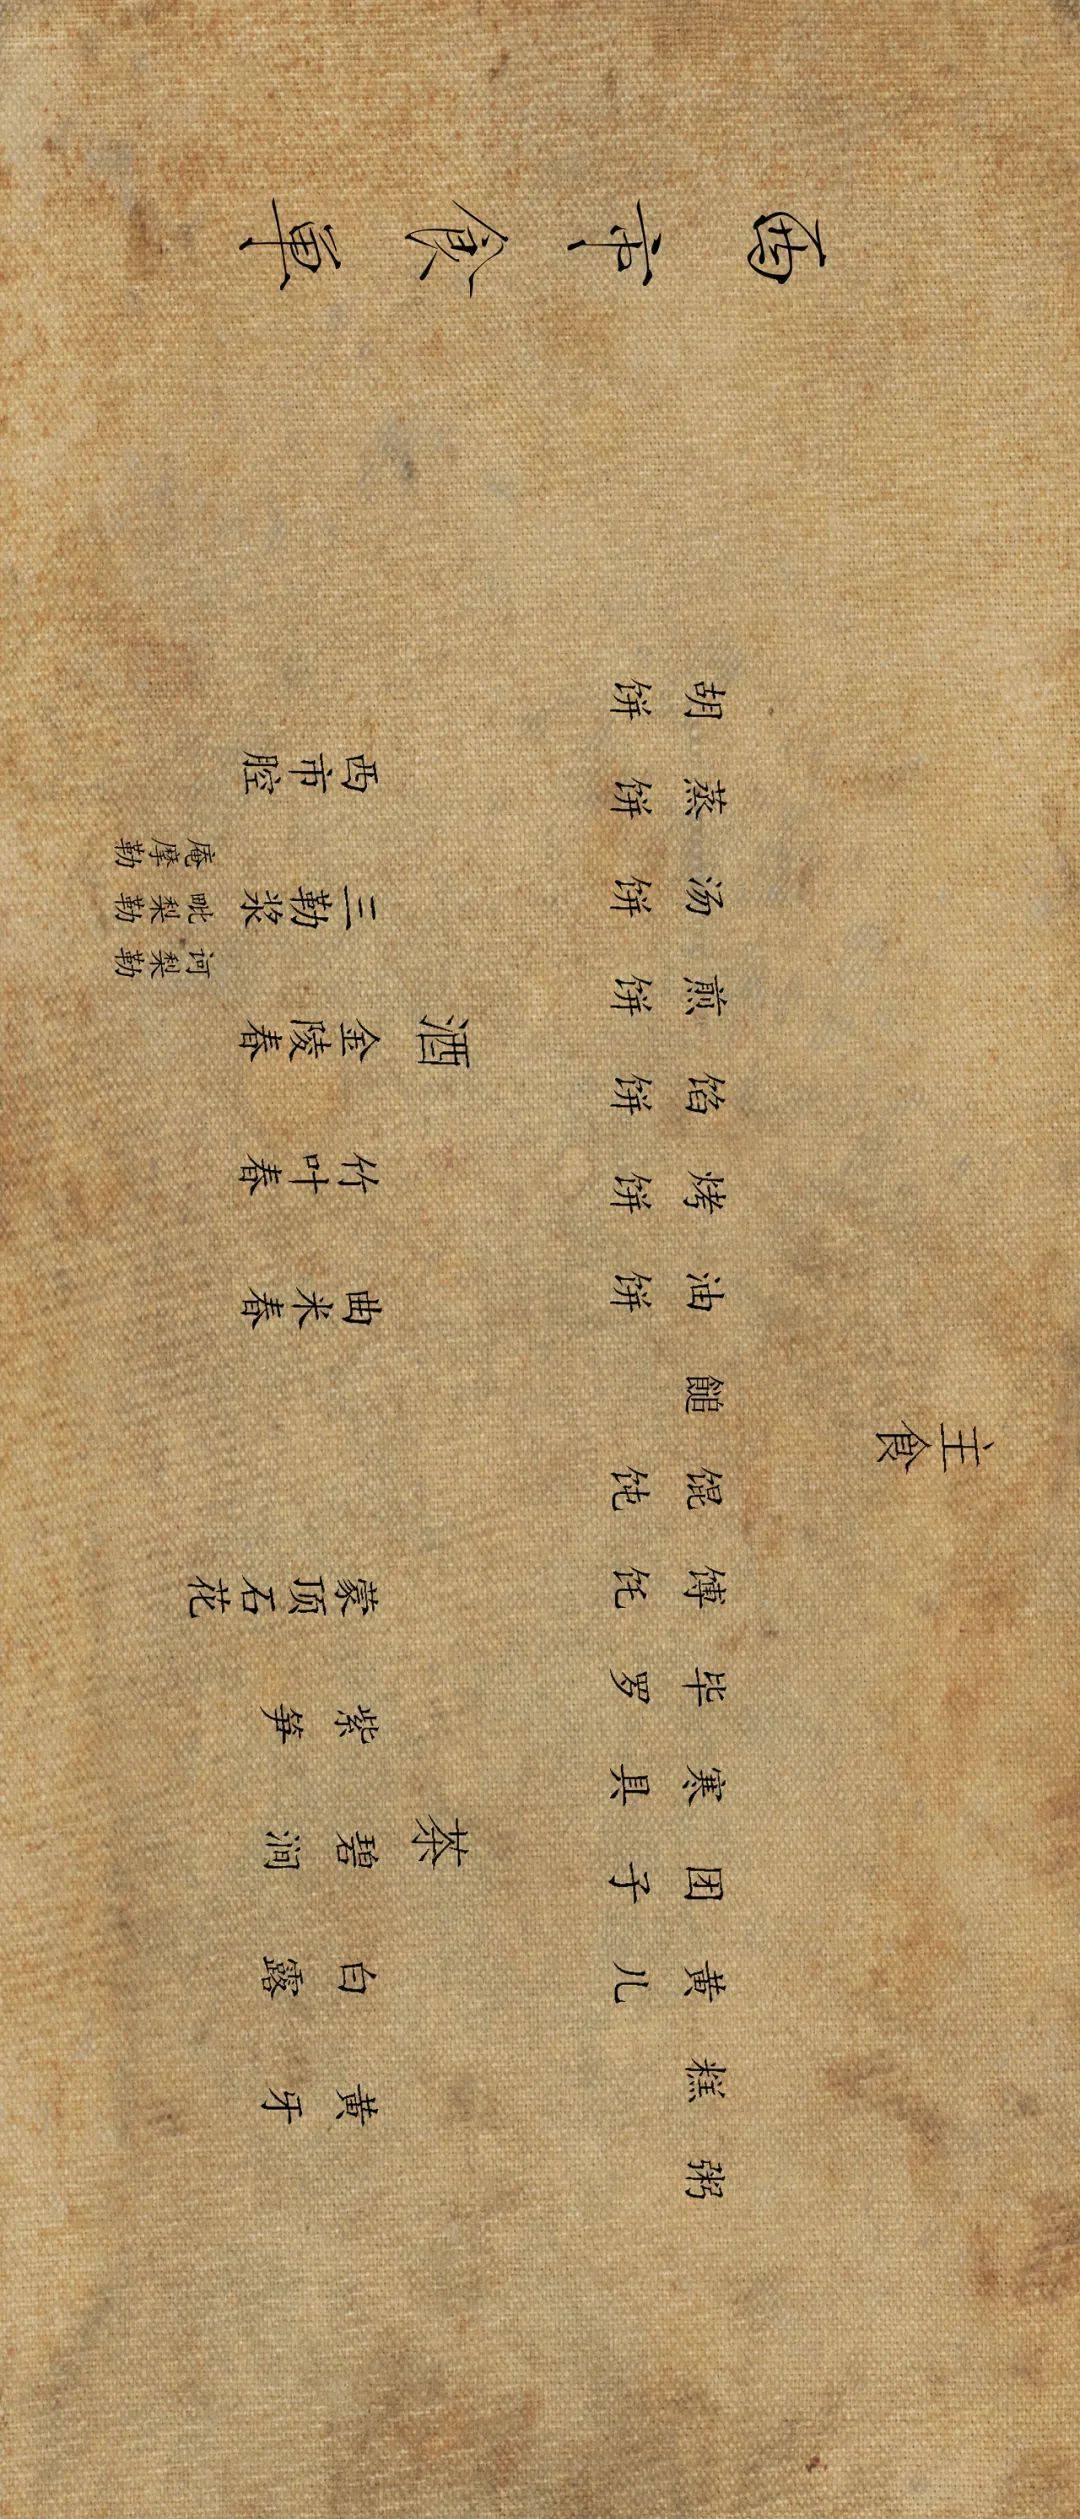 西市食单
主食
胡饼
蒸饼
汤饼
煎饼
馅饼
烤饼
油饼
䭔
馄饨
馎饦
毕罗
寒具
团子
黄儿
糕
粥
酒
西市腔
三勒浆
庵摩勒
毗梨勒
诃梨勒
金陵春
竹叶春
曲米春
茶
蒙顶石花
紫笋
碧涧
白露
黄牙